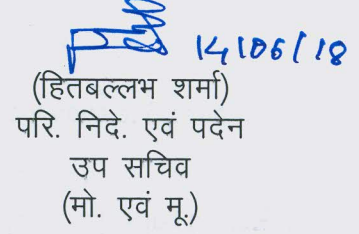 14/06/18
(हितबल्लभ शर्मा)
परि. निदे. एवं पदेन
उप सचिव
(मो. एवं मू.)